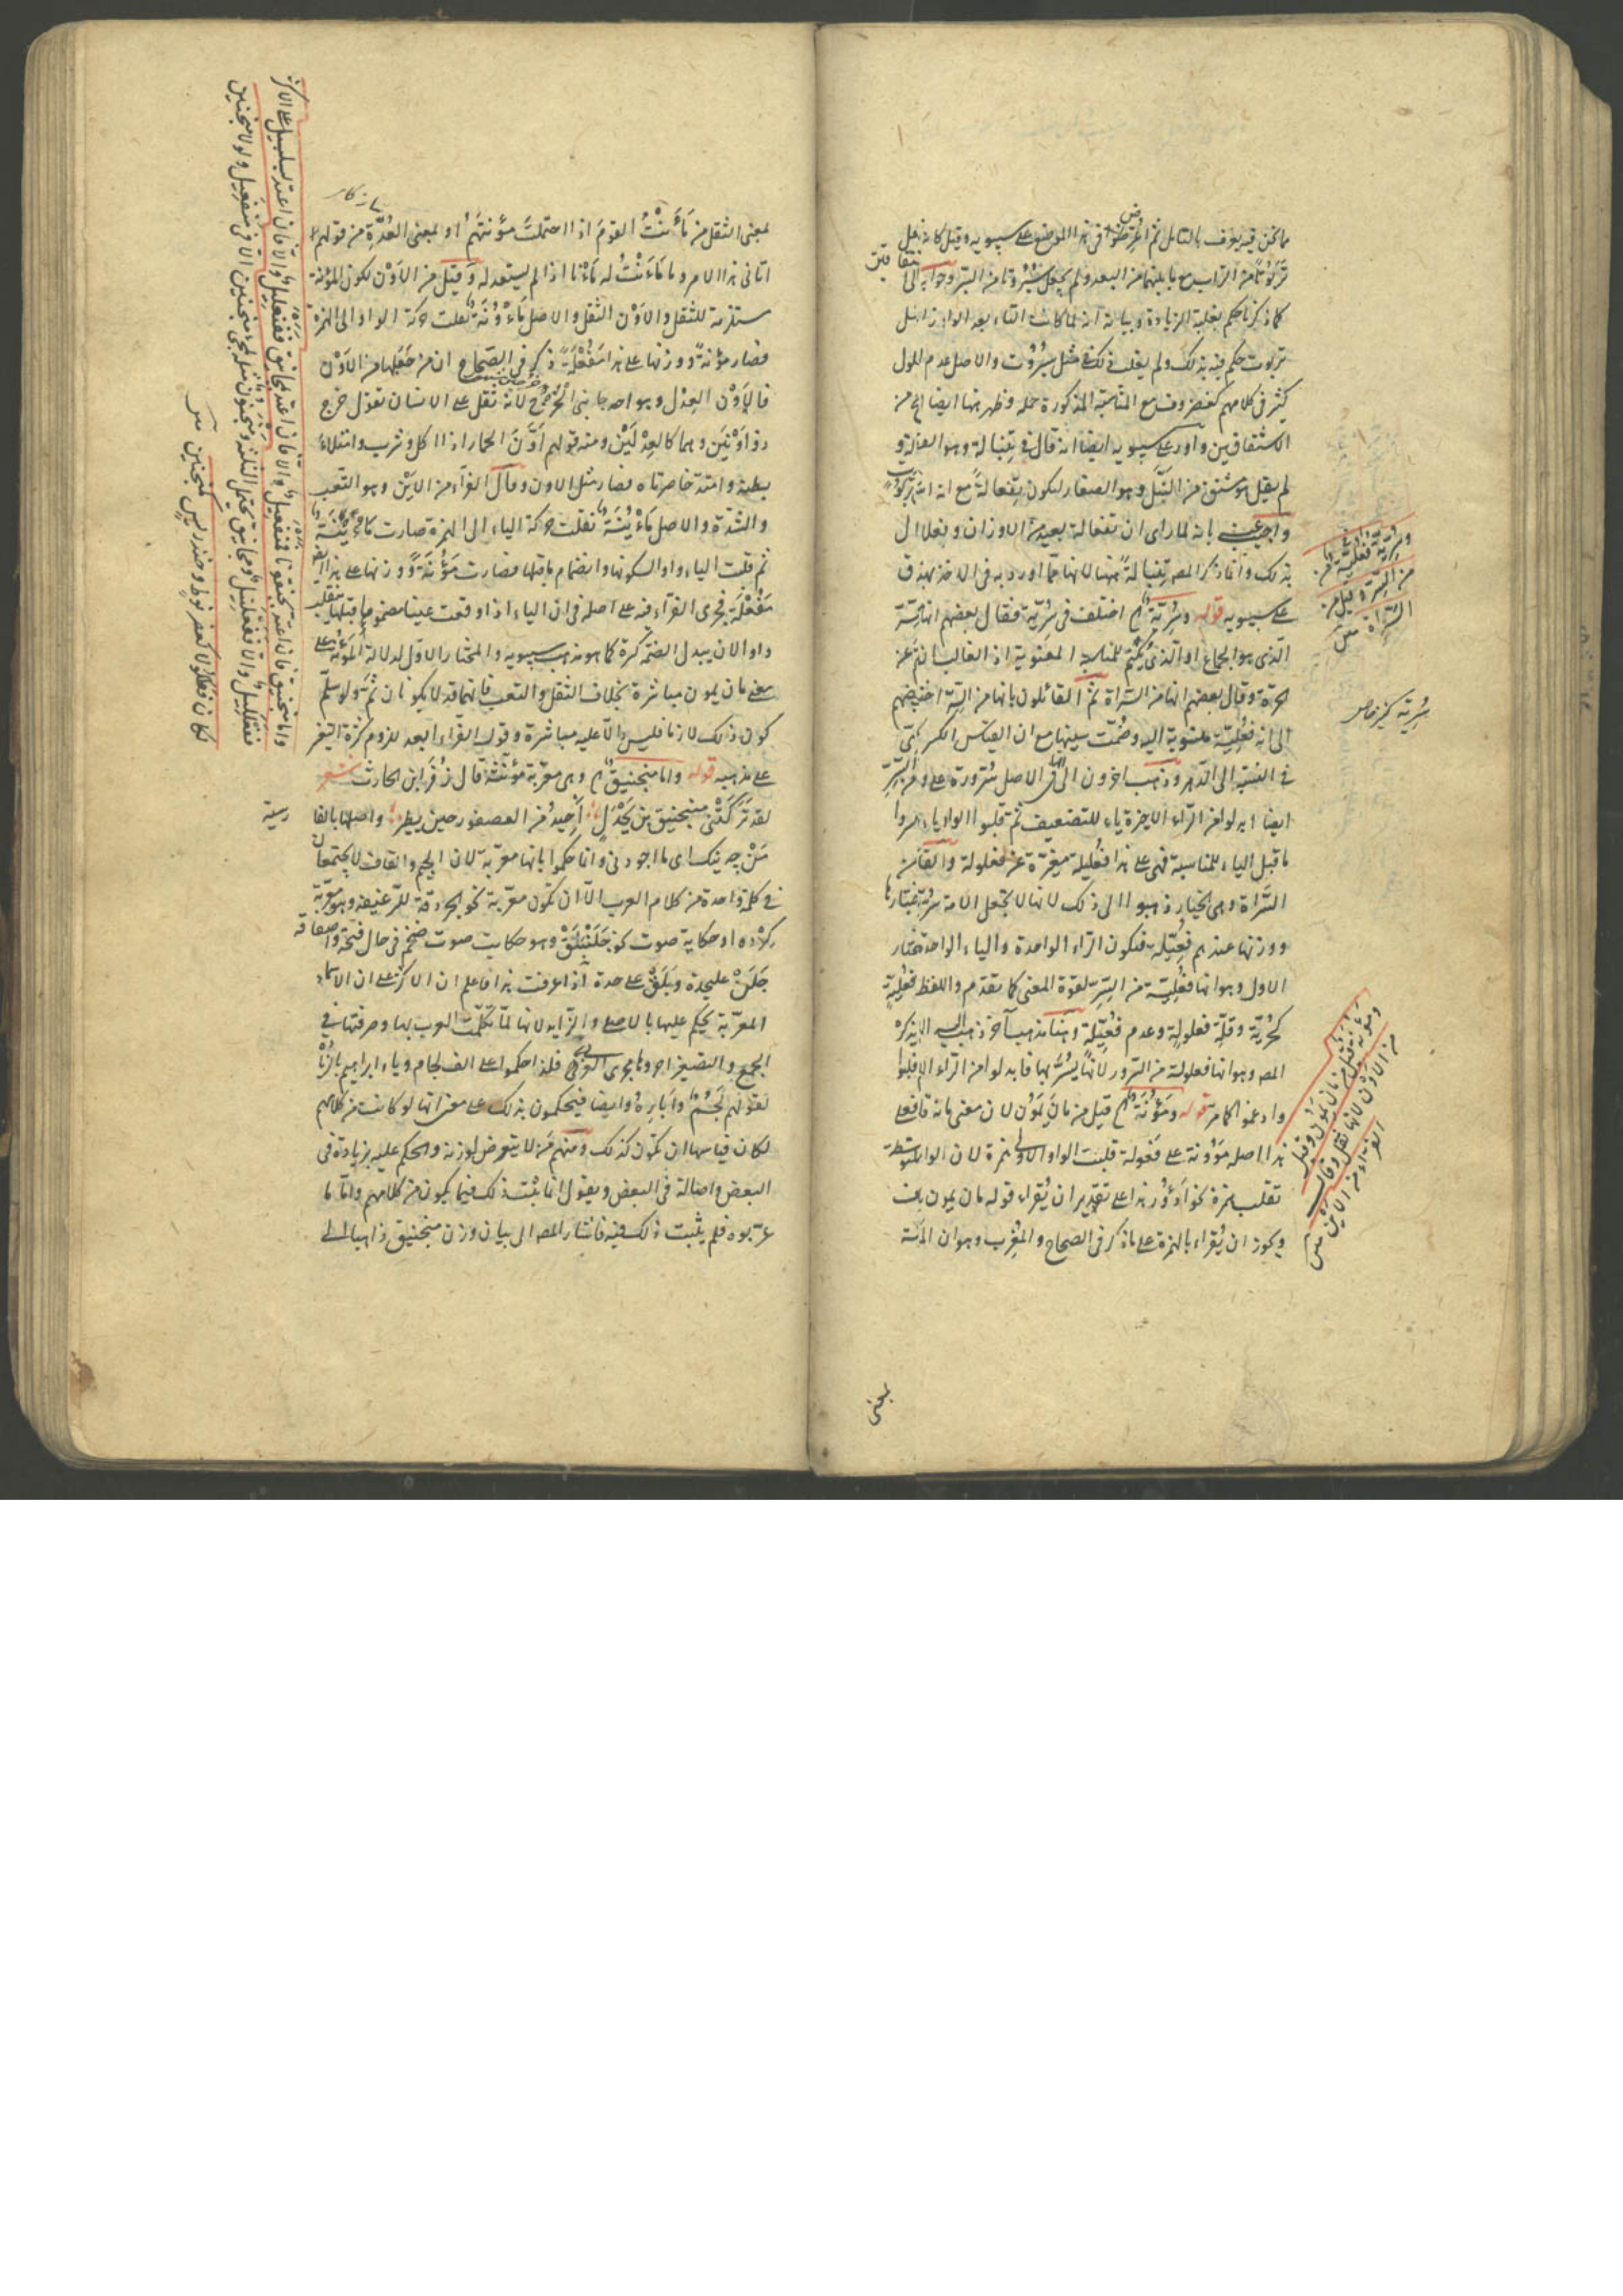 مما نحن فيه يعرف بالتأمل ثم اعترضوا في هذا الموضع على سيبويه وقيل كما نه جعل
تربوتا من التراب مع ما بينهما من البعد ولم يجعل سبروتا من السبر وجوابه انا
كما ذكرنا حكم بغلبة الزيادة وبيانه انه لما كانت التاء بعد الواو زائدة في مثل
تربوت حكم فيه بذلك ولم يغلب ذلك في مثل سبروت والاصل عدم فعلول
كثر في كلامهم كعضروف مع المناسبة المذكورة حمله وظهر منها ايضا انه من
الاشتقاقين واورد على سيبويه ايضا انه قال في تنبالة وهو القصير
لم يقل هو مشتق من النبل وهو الصغار ليكون تفعالة مع انه
واجيب بانه لما رأى ان تفعالة بعيد من الاوزان وفعلالة
بذلك وانما ذكر المصه تنبالة ههنا لانها مما اورد به في الاخذ
على سيبويه قوله وسرية اختلف في سرية فقال بعضهم انها من السر
الذي هو الجماع او الذي يكتم للمناسبة المعنوية اذ الغالب
الحرة وقال بعضهم انها من السراة ثم القائلون بانها من السر اختلفوا فبعضهم
الى انه فعلية منسوبة اليه وضمت سينها مع ان القياس الكسر كما
في النسبة الى الدهر وذهب اخرون الى انها في الاصل سرورة على وزن من السر
ايضا ابدلوا من الراء الاخيرة ياء للتضعيف ثم قلبوا الواو ياء وكسروا
ما قبل الياء للمناسبة فهي على هذا فعليلة مغيرة عن فعلولة والقائلون من
السراة وهي الخيار ذهبوا الى ذلك لانها لا تجعل الامة سرية الا بعد اختيارها
ووزنها عندهم فعيلة فتكون الراء الواحدة والياء الواحدة والمختار
الاول وهو انها فعلية من السر لقوة المعنى كما تقدم واللفظ فعلية
كحرية وقلة فعلولة وعدم فعيلة وهنا مذهب آخر ذهب اليه الا يذكره
المصه وهو انها فعلولة من السرور لانها يسر بها فابدلوا من الراء الاخيرة ياء
وادغموا كما مر قوله ومؤنة قيل من مان يمون لان معنى مانه قام على
هذا اصله موونة على فعولة قلبت الواو الاولى همزة لان الواو المتوسطة
تقلب همزة نحو ادؤر هذا على تقدير ان يقراء قوله مان يمون بلا همز
ويجوز ان يقراء بالهمزة على ما ذكر في الصحاح والمغرب وهو ان المؤنة
وسرية قيل فعلية من
من السر وقيل من
السراة متن
سرية كنيز خاص
ومؤنة قيل من مان يمون وقيل
من الاون لانها ثقل وقال
الفراء من الاين متن
بمعنى
بمعنى الثقل من مأنت القوم اذا احتملت مؤنتهم او بمعنى العدة من قولهم
اتاني هذا الامر وما مأنت له مأنا اذا لم يستعد له وقيل من الاون لكون المؤنة
مستلزمة للثقل والاون الثقل والاصل مأونة نقلت حركة الواو الى الهمزة
فصار مؤنة ووزنها على هذا مفعلة ذكر في الصحاح ان من جعلها من الاون
فالاون العدل وهو احد جانبي الخرج لانه ثقل على الانسان تقول خرج
ذو اونين وهما كالعدلين ومنه قولهم اون الحمار اذا اكل وشرب وامتلاء
بطنه وامتد خاصرتاه فصار مثل الاون وقال الفراء من الاين وهو التعب
والشدة والاصل مأينة نقلت حركة الياء الى الهمزة صارت مأينة
ثم قلبت الياء واوا لسكونها وانضمام ما قبلها فصارت مؤنة ووزنها على هذا
مفعلة فجرى الفراء فيه على اصله في ان الياء اذا وقعت عينا مضموما ما قبلها يقلب
واوا لان يبدل الضمة كسرة كما هو مذهب سيبويه والمختار الاول لدلالة المؤنة على
معنى مان يمون مباشرة بخلاف الثقل والتعب فانهما قد لا يكونان ثم ولو سلم
كون ذلك لازما فليس دالا عليه مباشرة وقول الفراء ابعد للزوم كثرة التغير
على مذهبه قوله واما منجنيق وهي معربة مؤنثة قال زفر ابن الحارث شعر
لقد تركتني منجنيق بن بجدل احيد من العصفور حين يطير واصلها بالفارسية
من چه نيك اي ما اجودني وانما حكموا بانها معربة لان الجيم والقاف لا يجتمعان
في كلمة واحدة من كلام العرب الا ان تكون معربة نحو الجردقة للرغيف وهو معربة
كرده او حكاية صوت نحو جلنبلق وهو حكايت صوت باب ضخم في حال فتحه واصفاقه
جلن على حدة وبلق على حدة اذا عرفت هذا فاعلم ان الاكثر على ان الاسماء
المعربة يحكم عليها بالاصلي والزايد لانها لما تكلمت العرب بها وصرفتها في
الجمع والتصغير اجروها مجرى العربي فلذا حكموا على الف لجام وياء ابراهيم بالزيادة
لقولهم لجم وابارة وايضا فيحكمون بذلك على معنى انها لو كانت من كلامهم
لكان قياسها ان تكون كذلك ومنهم من لا يتعرض لوزنه والحكم عليه بزيادة في
البعض واصالة في البعض ويقول انما يثبت ذلك فيما يكون من كلامهم واما ما
عربوه فلم يثبت ذلك فيه فاشار المصه الى بيان وزن منجنيق ذاهبا الى
واما منجنيق فان اعتد بجنقونا فمنفعيل والا فان اعتد بمجانيق ففنعليل والا فان اعتد بسلسبيل على الاكثر
ففعلليل والا ففعلنيل ومجانيق يحتمل الثلثة ومنجنون مثله لمجيء منجنين الا في منفعيل ولولا منجنين
لكان فعللولا كعضرفوط وخندريس كمنجنين متن